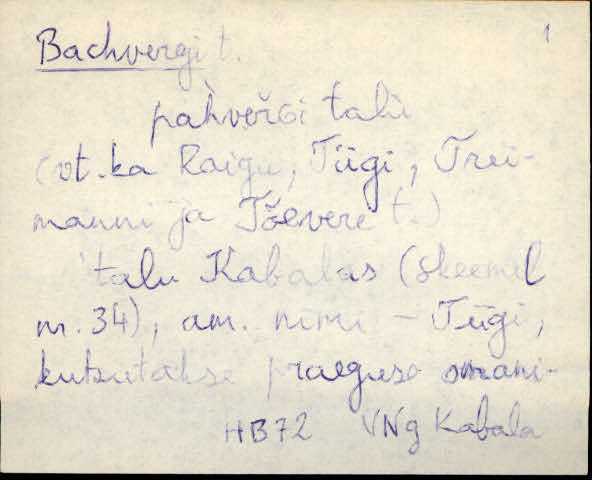 Bachvergi t. 1
pàhveŕgi talù
(vt. ka Raigu, Tiigi, Trei-
manni ja Tõevere t.)
talu Kabalas (skeemil
nr. 34), am. nimi - Tiigi,
kutsutakse praeguse omani-
HB72 VNg Kabala